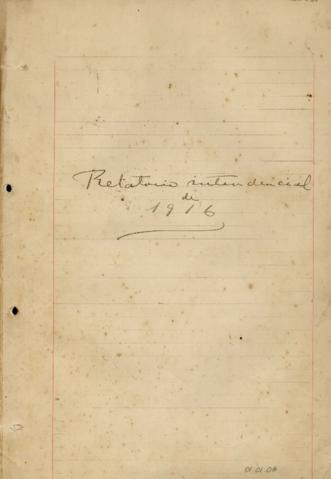 Relatorio intendencial
de
1916
01.01.08